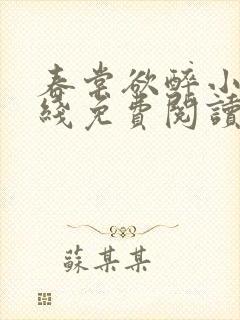 春棠欲醉小
綫免費閱讀
蘇某某